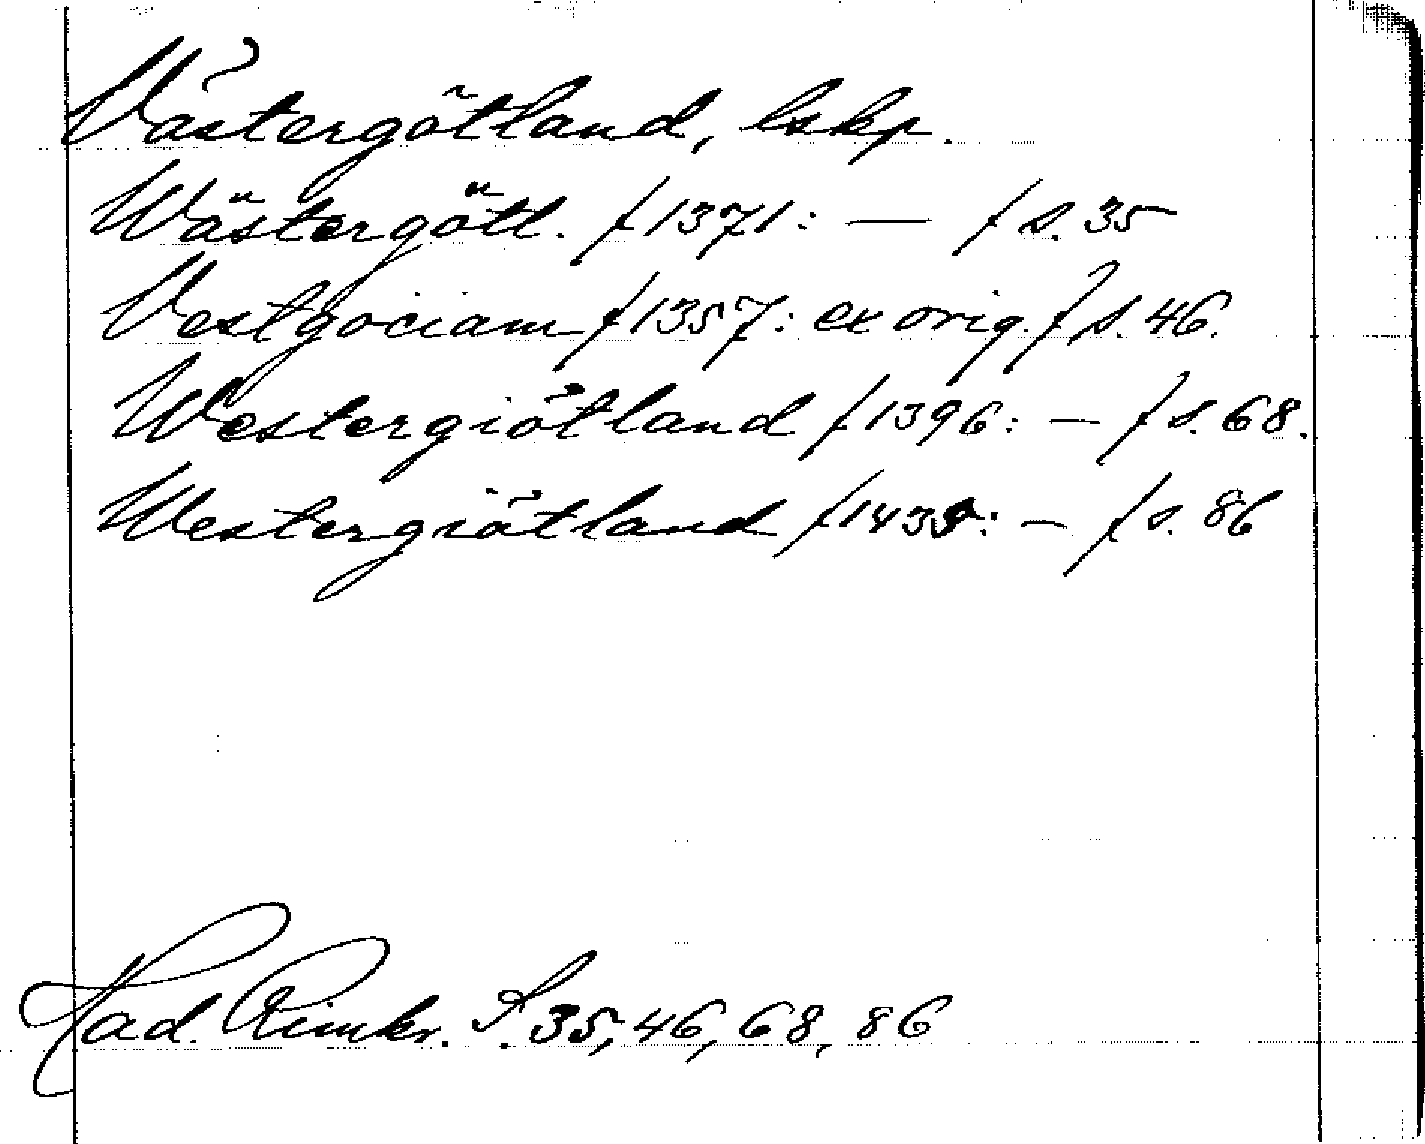 Västergötland, lskp.
Wästergötl. f 1371: — f s. 35
Vestgociam f 1357: ex orig. f s. 46.
Westergiötland f 1396: — f s. 68.
Westergiötland f 143 : — f s. 86
Had. Rimkr. S. 35, 46, 68, 86